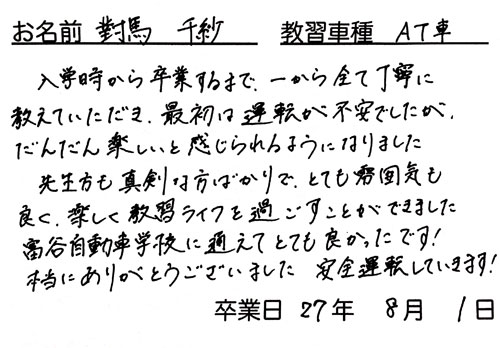 お名前 對馬 千紗 教習車種 AT車
入学時から卒業するまで、一から全て丁寧に
教えていただき、最初は運転が不安でしたが、
だんだん楽しいと感じられるようになりました
先生方も真剣な方ばかりで、とても雰囲気も
良く、楽しく教習ライフを過ごすことができました
富谷自動車学校に通えてとても良かったです!
本当にありがとうございました 安全運転していきます!
卒業日 27年 8月 1日